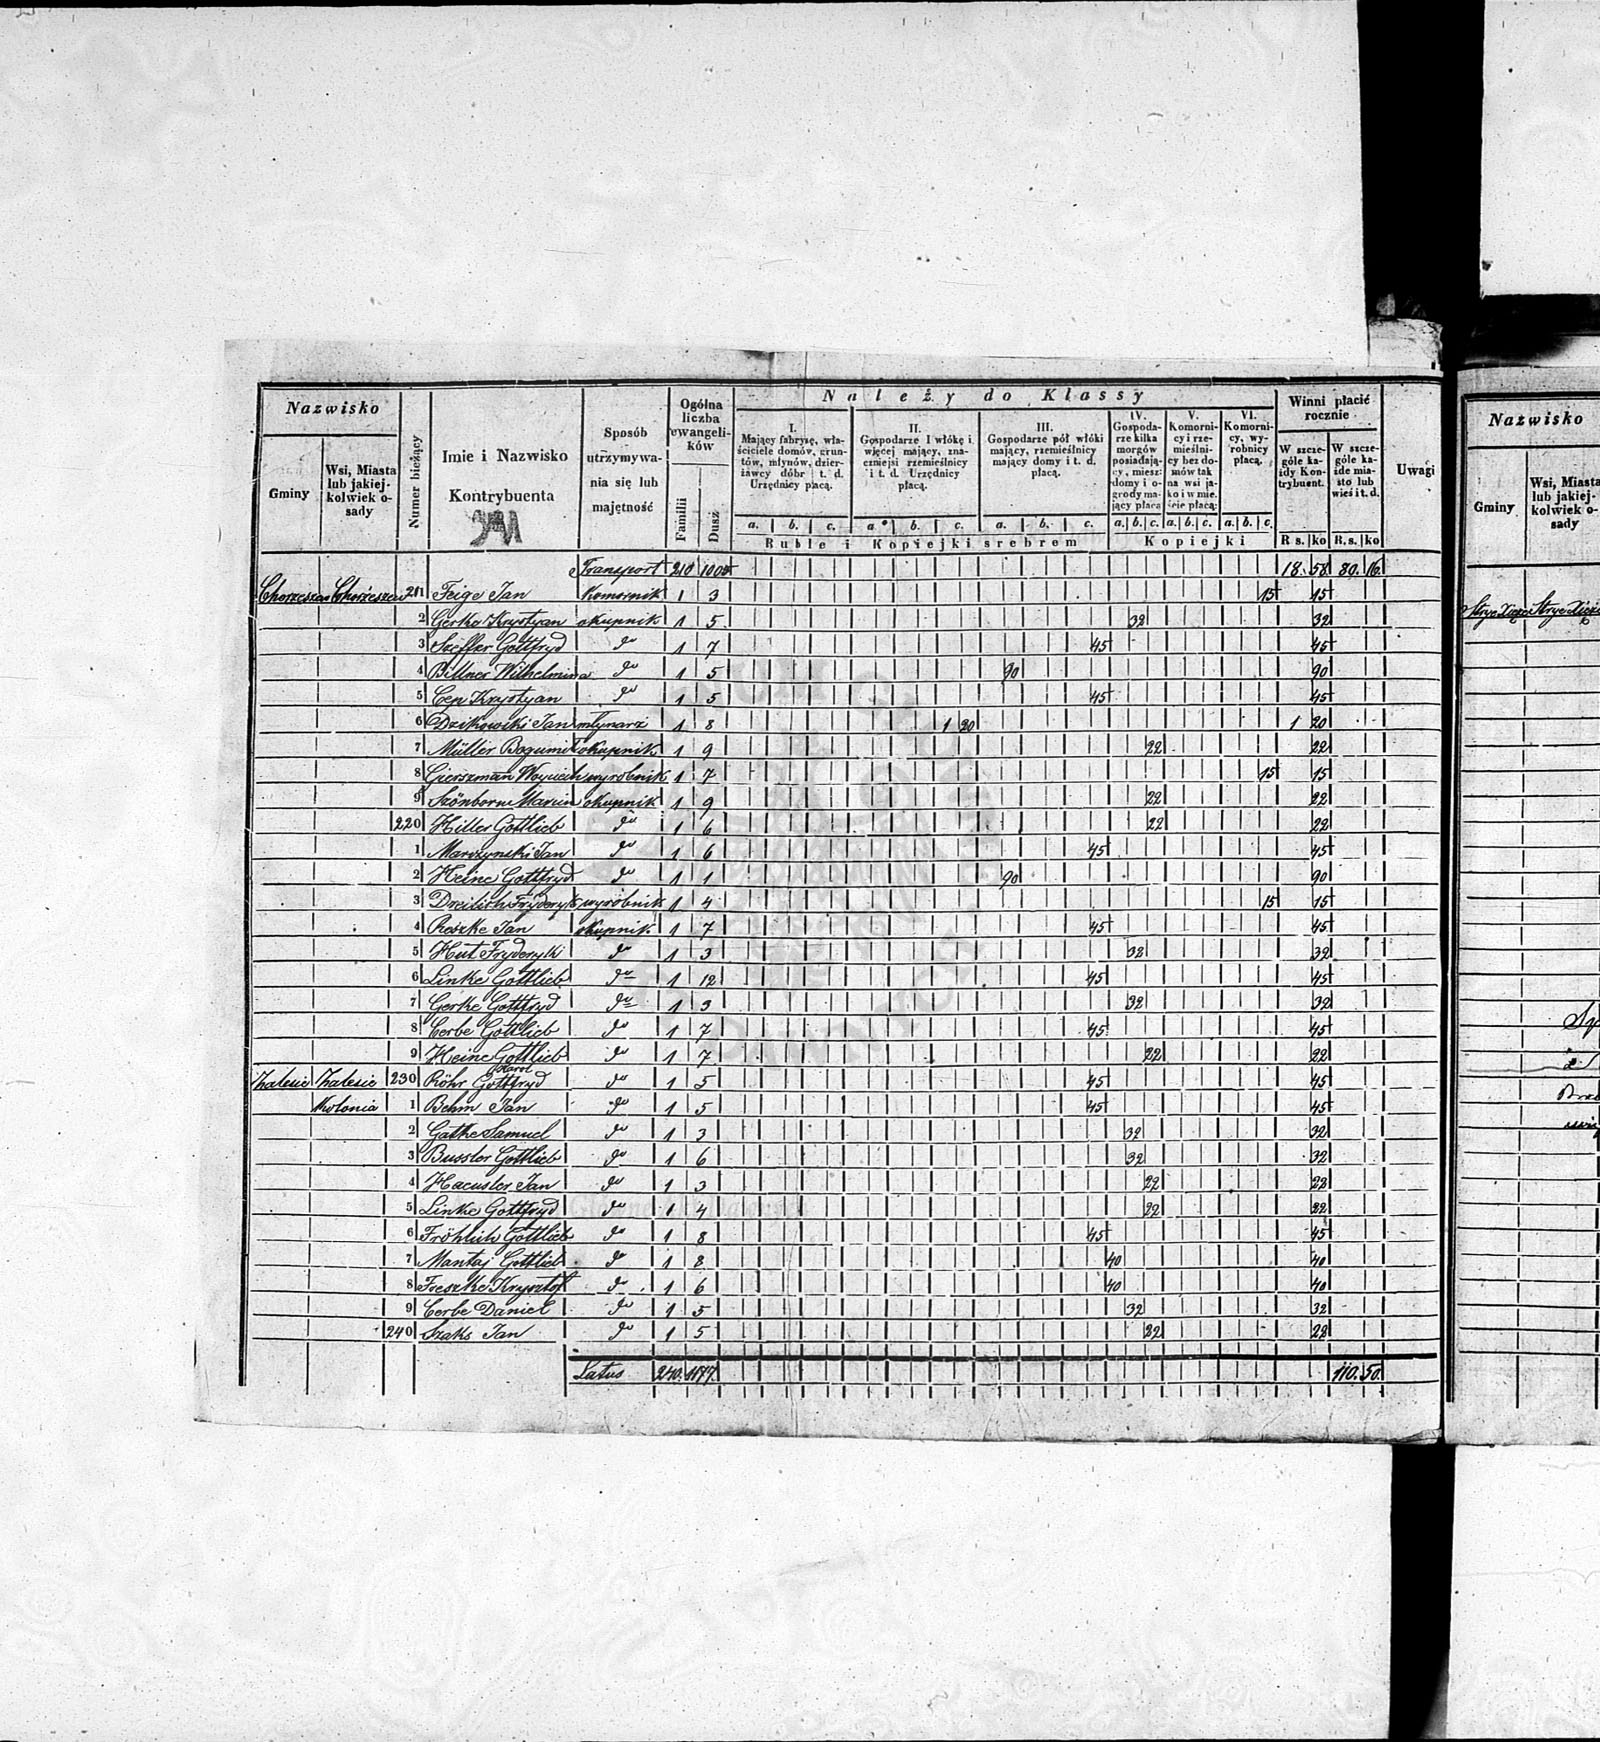 Nazwisko
Gminy
Wsi, Miasta lub jakiejkolwiek osady
Numer bieżący
Imie i Nazwisko Kontrybuenta
Sposób utrzymywania się lub majętność
Ogólna liczba ewangelików
Familii
Dusz
Należy do Klassy
I. Mający fabrysę, właściciele domów, gruntów, młynów, dzierżawcy dóbr i t. d. Urzędnicy płacą.
II. Gospodarze 1 włókę i więcej mający, znaczniejsi rzemieślnicy i t. d. Urzędnicy płacą.
III. Gospodarze pół włóki mający, rzemieślnicy mający domy i t. d. płacą.
IV. Gospodarze kilka morgów posiadający, mieszc: domy i ogrody mający płacą
V. Komornicy i rzemieślnicy bez domów tak na wsi jako i w mieście płacą:
VI. Komornicy, wyrobnicy płacą.
a. b. c. a. b. c. a. b. c. a. b. c. a. b. c. a. b. c.
Ruble i Kopiejki srebrem
Kopiejki
Winni płacić rocznie
W szczególe każdy Kontrybuent.
W szczególe każde miasto lub wieś i t. d.
R s. ko R. s. ko
Uwagi
Transport 210 1005 18. 58 80. 16.
Chorzeszew Chorzeszew 211 Feige Jan Komornik 1 3 15 15
2 Gerke Krystyan okupnik 1 5 32 32
3 Szeffer Gottfryd do 1 7 45 45
4 Bittner Wilhelmina do 1 5 90 90
5 Cep Krystyan do 1 5 45 45
6 Dzikowski Jan młynarz 1 8 1 20 1 20
7 Müller Bogumił okupnik 1 9 22 22
8 Gierszman Woyciech wyrobnik 1 7 15 15
9 Szönborn Marcin okupnik 1 9 22 22
220 Hiller Gottlieb do 1 6 22 22
1 Marczynski Jan do 1 6 45 45
2 Heine Gottfryd do 1 1 90 90
3 Dreilich Fryderyk wyrobnik 1 4 15 15
4 Reszke Jan okupnik 1 7 45 45
5 Hut Fryderyk do 1 3 32 32
6 Linke Gottlieb do 1 12 45 45
7 Gerke Gottfryd do 1 3 32 32
8 Cerbe Gottlieb do 1 7 45 45
9 Heine Gottlieb do 1 7 22 22
Karol
Zalesie Zalesie 230 Röhr Gottfryd do 1 5 45 45
Kolonia 1 Behm Jan do 1 5 45 45
2 Gathe Samuel do 1 3 32 32
3 Bussler Gottlieb do 1 6 32 32
4 Haeusler Jan do 1 3 22 22
5 Linke Gottfryd do 1 4 22 22
6 Fröhlich Gottlieb do 1 8 45 45
7 Mantaj Gottlieb do 1 8 40 40
8 Freszke Krysztof do 1 6 40 40
9 Cerbe Daniel do 1 5 32 32
240 Szaks Jan do 1 5 22 22
Latus 240. 1177. 110. 50.
Nazwisko
Gminy
Wsi, Miasta lub jakiejkolwiek osady